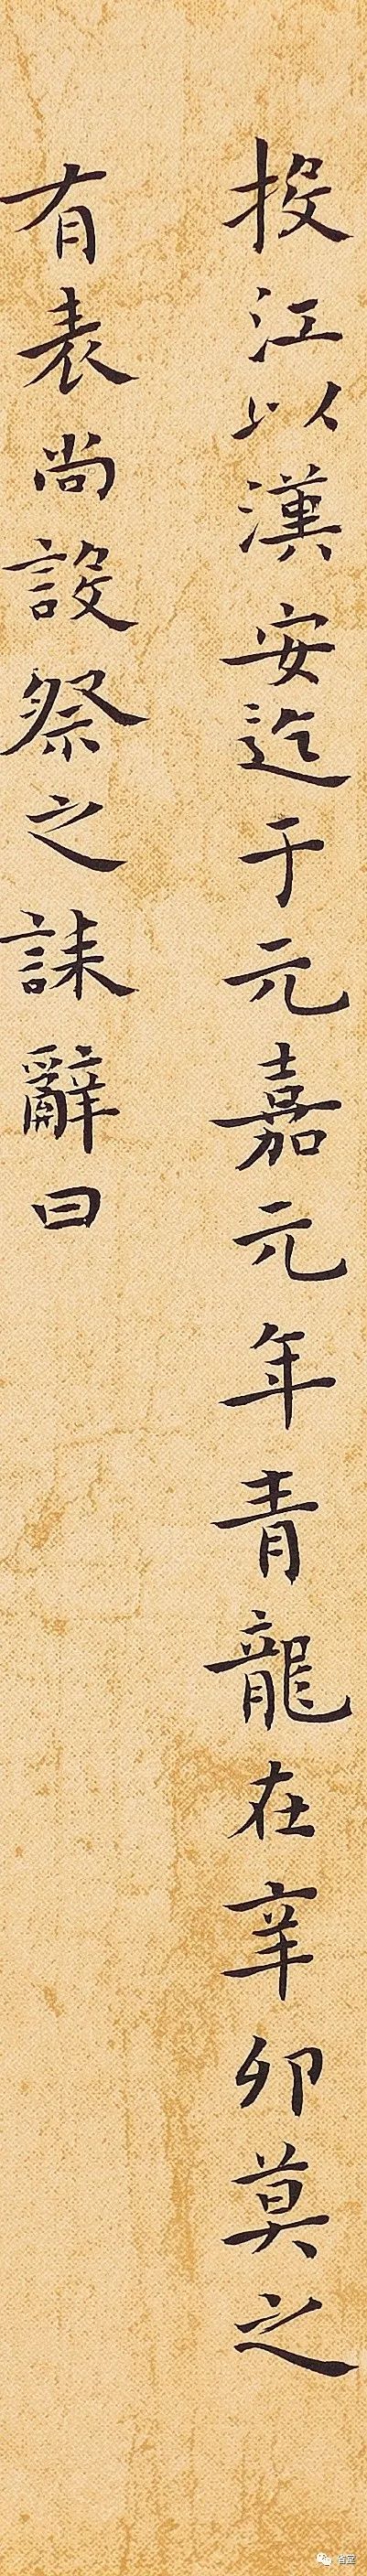 投江以漢安迄于元嘉元年青龍在辛卯莫之
有表尚設祭之誄辭曰